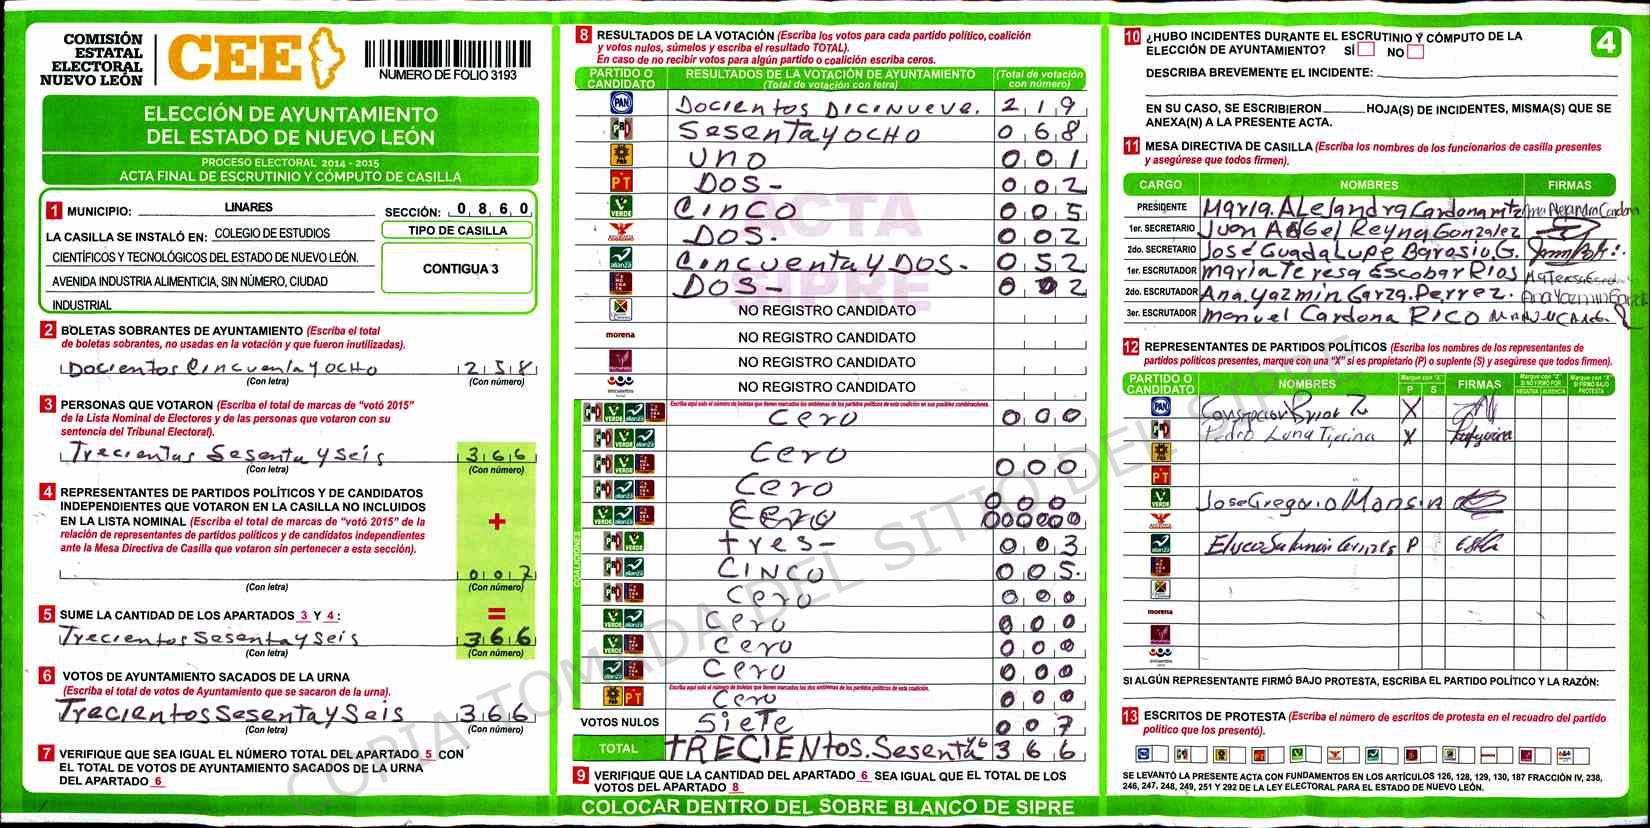 COMISIÓN
ESTATAL
ELECTORAL
NUEVO LEÓN
CEE
NUMERO DE FOLIO 3193
ELECCIÓN DE AYUNTAMIENTO
DEL ESTADO DE NUEVO LEÓN
PROCESO ELECTORAL 2014 - 2015
ACTA FINAL DE ESCRUTINIO Y CÓMPUTO DE CASILLA
1 MUNICIPIO: LINARES SECCIÓN: 0 8 6 0
LA CASILLA SE INSTALÓ EN: COLEGIO DE ESTUDIOS
CIENTÍFICOS Y TECNOLÓGICOS DEL ESTADO DE NUEVO LEÓN.
AVENIDA INDUSTRIA ALIMENTICIA, SIN NÚMERO, CIUDAD
INDUSTRIAL
TIPO DE CASILLA
CONTIGUA 3
2 BOLETAS SOBRANTES DE AYUNTAMIENTO (Escriba el total
de boletas sobrantes, no usadas en la votación y que fueron inutilizadas).
Docientos Cincuenta y OCHO 2 5 8
(Con letra) (Con número)
3 PERSONAS QUE VOTARON (Escriba el total de marcas de "votó 2015"
de la Lista Nominal de Electores y de las personas que votaron con su
sentencia del Tribunal Electoral).
Trecientas Sesenta y Seis 3 6 6
(Con letra) (Con número)
4 REPRESENTANTES DE PARTIDOS POLÍTICOS Y DE CANDIDATOS
INDEPENDIENTES QUE VOTARON EN LA CASILLA NO INCLUIDOS
EN LA LISTA NOMINAL (Escriba el total de marcas de "votó 2015" de la
relación de representantes de partidos políticos y de candidatos independientes
ante la Mesa Directiva de Casilla que votaron sin pertenecer a esta sección).
+
0 0 7
(Con letra) (Con número)
5 SUME LA CANTIDAD DE LOS APARTADOS 3 Y 4 : =
Trecientos Sesenta y Seis 3 6 6
(Con letra) (Con número)
6 VOTOS DE AYUNTAMIENTO SACADOS DE LA URNA
(Escriba el total de votos de Ayuntamiento que se sacaron de la urna).
Trecientos Sesenta y Seis 3 6 6
(Con letra) (Con número)
7 VERIFIQUE QUE SEA IGUAL EL NÚMERO TOTAL DEL APARTADO 5 CON
EL TOTAL DE VOTOS DE AYUNTAMIENTO SACADOS DE LA URNA
DEL APARTADO 6
8 RESULTADOS DE LA VOTACIÓN (Escriba los votos para cada partido político, coalición
y votos nulos, súmelos y escriba el resultado TOTAL).
En caso de no recibir votos para algún partido o coalición escriba ceros.
PARTIDO O CANDIDATO RESULTADOS DE LA VOTACIÓN DE AYUNTAMIENTO (Total de votación con letra) (Total de votación con número)
PAN Docientos Dicinueve. 2 1 9
PRI Sesenta y OCHO 0 6 8
PRD UNO 0 0 1
PT DOS - 0 0 2
VERDE CINCO 0 0 5
DOS. 0 0 2
alianza Cincuenta y DOS - 0 5 2
DOS - 0 0 2
NO REGISTRO CANDIDATO
morena NO REGISTRO CANDIDATO
NO REGISTRO CANDIDATO
NO REGISTRO CANDIDATO
ACTA
SIPRE
COALICIONES
Escriba aquí solo el número de boletas que tienen marcados los emblemas de los partidos políticos de esta coalición en sus posibles combinaciones.
Cero 0 0 0
Cero
Cero 0 0 0
Cero 0 0 0
Cero 000000
tres - 0 0 3
CINCO 0 0 5.
Cero 0 0 0
Cero 0 0 0
Cero 0 0 0
Cero 0 0 0
Escriba aquí solo el número de boletas que tienen marcados los dos emblemas de los partidos políticos de esta coalición.
PRD PT Cero 0 0 0
VOTOS NULOS Siete 0 0 7
TOTAL tRECIENtos. Sesenta y 6 3 6 6
9 VERIFIQUE QUE LA CANTIDAD DEL APARTADO 6 SEA IGUAL QUE EL TOTAL DE LOS
VOTOS DEL APARTADO 8
COLOCAR DENTRO DEL SOBRE BLANCO DE SIPRE
10 ¿HUBO INCIDENTES DURANTE EL ESCRUTINIO Y CÓMPUTO DE LA
ELECCIÓN DE AYUNTAMIENTO? SÍ NO
4
DESCRIBA BREVEMENTE EL INCIDENTE:
EN SU CASO, SE ESCRIBIERON HOJA(S) DE INCIDENTES, MISMA(S) QUE SE
ANEXA(N) A LA PRESENTE ACTA.
11 MESA DIRECTIVA DE CASILLA (Escriba los nombres de los funcionarios de casilla presentes
y asegúrese que todos firmen).
CARGO NOMBRES FIRMAS
PRESIDENTE Maria. ALejandra Cardona mtz Ma Alejandra Cardona
1er. SECRETARIO Juan Angel Reyna Gonzalez
2do. SECRETARIO José Guadalupe Barosio G.
1er. ESCRUTADOR maria Teresa Escobar Rios
2do. ESCRUTADOR Ana. Yazmin Garza. Perrez. Ana Yazmin Garza
3er. ESCRUTADOR manuel Cardona RICO
12 REPRESENTANTES DE PARTIDOS POLÍTICOS (Escriba los nombres de los representantes de
partidos políticos presentes, marque con una "X" si es propietario (P) o suplente (S) y asegúrese que todos firmen).
PARTIDO O CANDIDATO NOMBRES Marque con "X" P S FIRMAS Marque con "X" SI NO FIRMÓ POR NEGATIVA AUSENCIA Marque con "X" SI FIRMÓ BAJO PROTESTA
PAN X
PRI Pedro Luna Tijerina X
PRD
PT
VERDE Jose Gregorio
alianza P
morena
SI ALGÚN REPRESENTANTE FIRMÓ BAJO PROTESTA, ESCRIBA EL PARTIDO POLÍTICO Y LA RAZÓN:
13 ESCRITOS DE PROTESTA (Escriba el número de escritos de protesta en el recuadro del partido
político que los presentó).
SE LEVANTÓ LA PRESENTE ACTA CON FUNDAMENTOS EN LOS ARTÍCULOS 126, 128, 129, 130, 187 FRACCIÓN IV, 238,
246, 247, 248, 249, 251 Y 292 DE LA LEY ELECTORAL PARA EL ESTADO DE NUEVO LEÓN.
COPIA TOMADA DEL SITIO DEL SIPRE